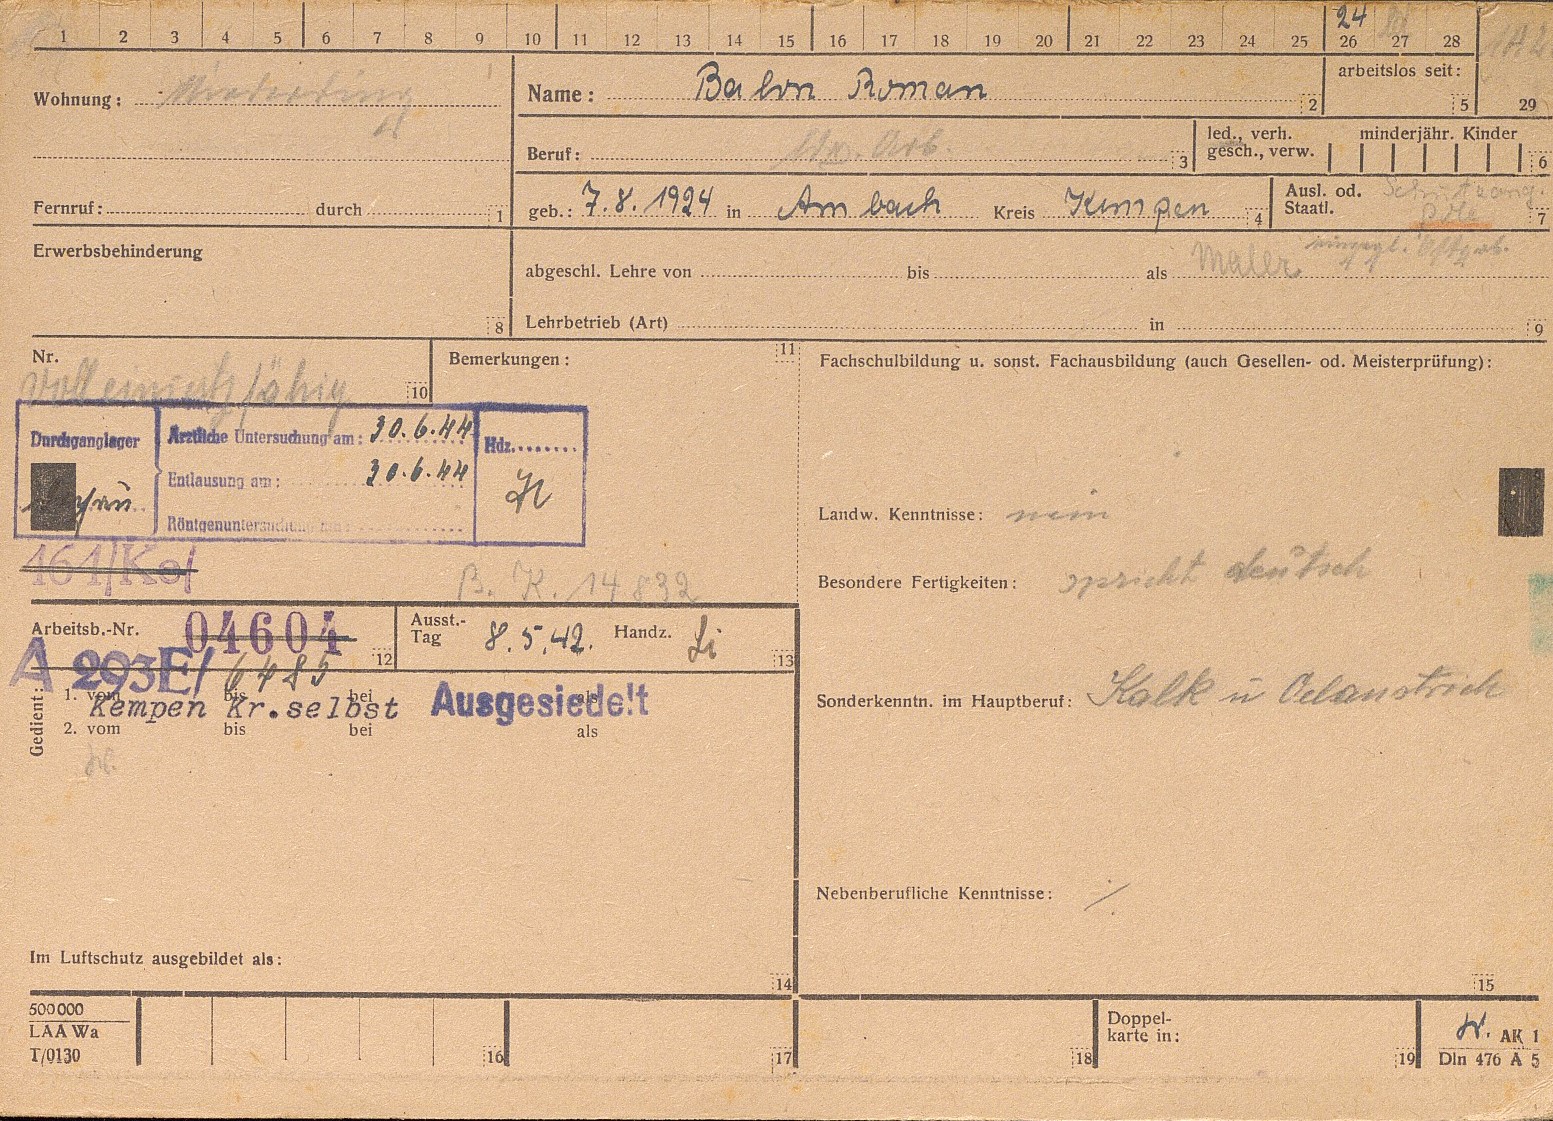 1 2 3 4 5 6 7 8 9 10 11 12 13 14 15 16 17 18 19 20 21 22 23 24 25 26 27 28
24
Wohnung:
Name: Balon Roman 2
arbeitslos seit: 5
29
Beruf: Arb. 3
led., verh.
gesch., verw.
minderjähr. Kinder
6
Fernruf: durch 1
geb.: 7.8.1924 in Ambach Kreis Kempen 4
Ausl. od.
Staatl.
Schutzang.
Pole
7
Erwerbsbehinderung
8
eingegl. Ostgeb.
abgeschl. Lehre von bis als Maler
Lehrbetrieb (Art) in 9
Nr.
Voll einsatzfähig
10
Bemerkungen:
11
Durchganglager
Ärztliche Untersuchung am: 30.6.44
Entlausung am: 30.6.44
Röntgenuntersuchung am:
Hdz.
161/Ko/
B. K. 14832
Arbeitsb.-Nr. 04604
12
A 293E/ 6485
Ausst.-
Tag 8.5.42. Handz. Li
13
Gedient:
1. vom bis bei als
Kempen Kr.selbst
Ausgesiedelt
2. vom bis bei als
Im Luftschutz ausgebildet als:
14
Fachschulbildung u. sonst. Fachausbildung (auch Gesellen- od. Meisterprüfung):
Landw. Kenntnisse: nein
Besondere Fertigkeiten: spricht deutsch
Sonderkenntn. im Hauptberuf: Kalk u Oelanstrich
Nebenberufliche Kenntnisse:
15
500000
LAA Wa
T/0130
16
17
18
Doppel-
karte in:
19
AK 1
Dln 476 A 5